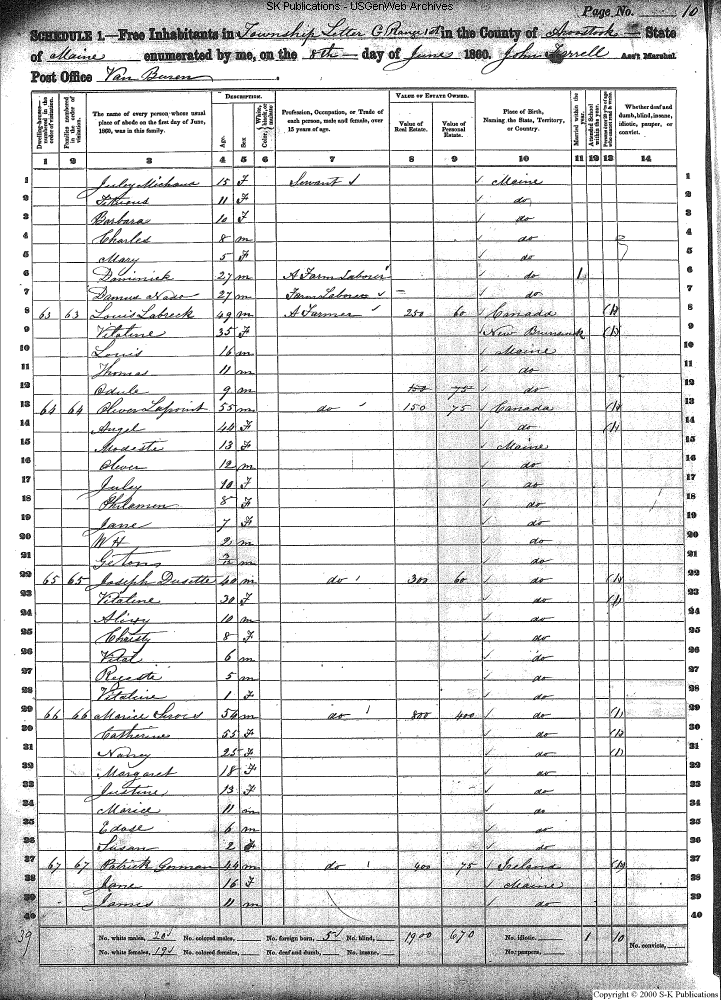 SK Publications - USGenWeb Archives
Page No. 10
SCHEDULE 1.—Free Inhabitants in Township Letter G Range 1st in the County of Aroostook State
of Maine enumerated by me, on the 8th day of June 1860. John Ass't Marshal
Post Office Van Buren
Dwelling-houses—numbered in the order of visitation.
Families numbered in the order of visitation.
The name of every person whose usual place of abode on the first day of June, 1860, was in this family.
DESCRIPTION.
Age.
Sex
Color, White, black, or mulatto
Profession, Occupation, or Trade of each person, male and female, over 15 years of age.
VALUE OF ESTATE OWNED.
Value of Real Estate.
Value of Personal Estate.
Place of Birth, Naming the State, Territory, or Country.
Married within the year.
Attended School within the year.
Persons over 20 y'rs of age who cannot read & write.
Whether deaf and dumb, blind, insane, idiotic, pauper, or convict.
1 2 3 4 5 6 7 8 9 10 11 12 13 14
1 Juley Michaud 15 F Servant Maine 1
2 11 F do 2
3 Barbara 10 F do 3
4 Charles 8 m do 4
5 Mary 5 F do 5
6 Dominick 27 m A Farm Laborer do 1 6
7 Damus 27 m Farm Laborer do 7
8 63 63 Louis Labreck 49 m A Farmer 250 60 Canada (1) 8
9 Vitaline 35 F New Brunswick (1) 9
10 Louis 16 m Maine 10
11 Thomas 11 m do 11
12 Odule 9 m 150 75 do 12
13 64 64 Oliver Lapoint 55 m do 150 75 Canada (1) 13
14 Angel 44 F do (1) 14
15 Modeste 13 F Maine 15
16 Oliver 12 m do 16
17 July 10 F do 17
18 Philamen 8 F do 18
19 Jane 7 F do 19
20 W H 2 m do 20
21 m do 21
22 65 65 Joseph Dusette 40 m do 300 60 do (1) 22
23 Vitaline 30 F do (1) 23
24 10 m do 24
25 Christy 8 F do 25
26 Vital 6 m do 26
27 5 m do 27
28 Vitaline 1 F do 28
29 66 66 Marice 54 m do 800 400 do (1) 29
30 Catherine 55 F do (1) 30
31 Nancy 25 F do (1) 31
32 Margaret 18 F do 32
33 Justine 13 F do 33
34 Marice 11 m do 34
35 6 m do 35
36 Susan 2 F do 36
37 67 67 Patrick Gorman 44 m do 400 75 Ireland (1) 37
38 Jane 16 F Maine 38
39 James 11 m do 39
40 40
39
No. white males, 20 No. colored males, No. foreign born, 5 No. blind, 1900 670 No. idiotic, 1 10 No. convicts,
No. white females, 19 No. colored females, No. deaf and dumb, No. insane, No. paupers,
Copyright © 2000 S-K Publications